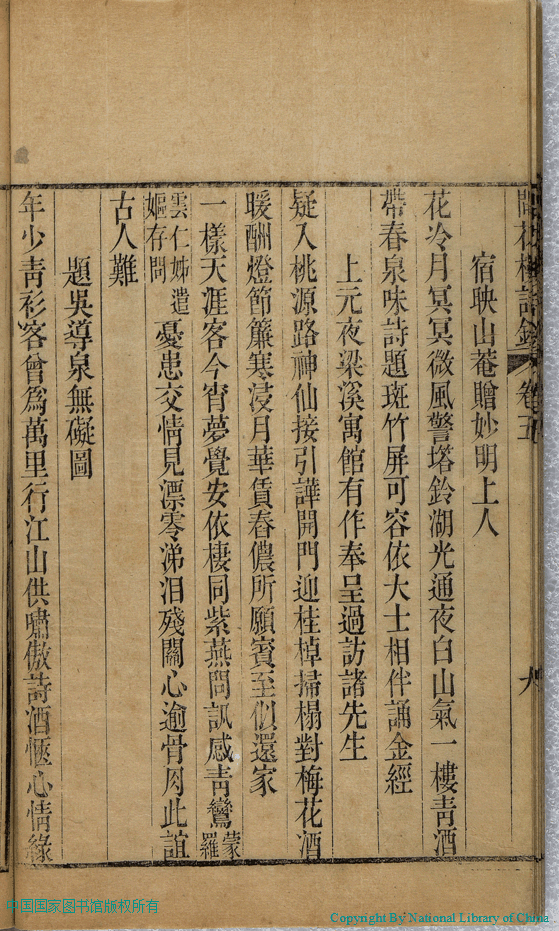 卷五
宿映山菴贈妙明上人
花冷月冥冥微風警塔鈴湖光通夜白山氣一樓青酒
帶春泉味詩題斑竹屏可容依大士相伴誦金經
上元夜梁溪寓館有作奉呈過訪諸先生
疑入桃源路神仙接引譁開門迎桂棹掃榻對梅花酒
暖酬燈節簾寒浸月華賃舂儂所願賓至似還家
一樣天涯客今宵夢覺安依棲同紫燕問訊感青鸞蒙羅
雲仁姊遣嫗存問憂患交情見漂零涕泪殘關心逾骨肉此誼
古人難
題吳導泉無礙圖
年少青衫客曾為萬里行江山供嘯傲詩酒愜心情緣
中国国家图书馆版权所有
Copyright By National Library of China